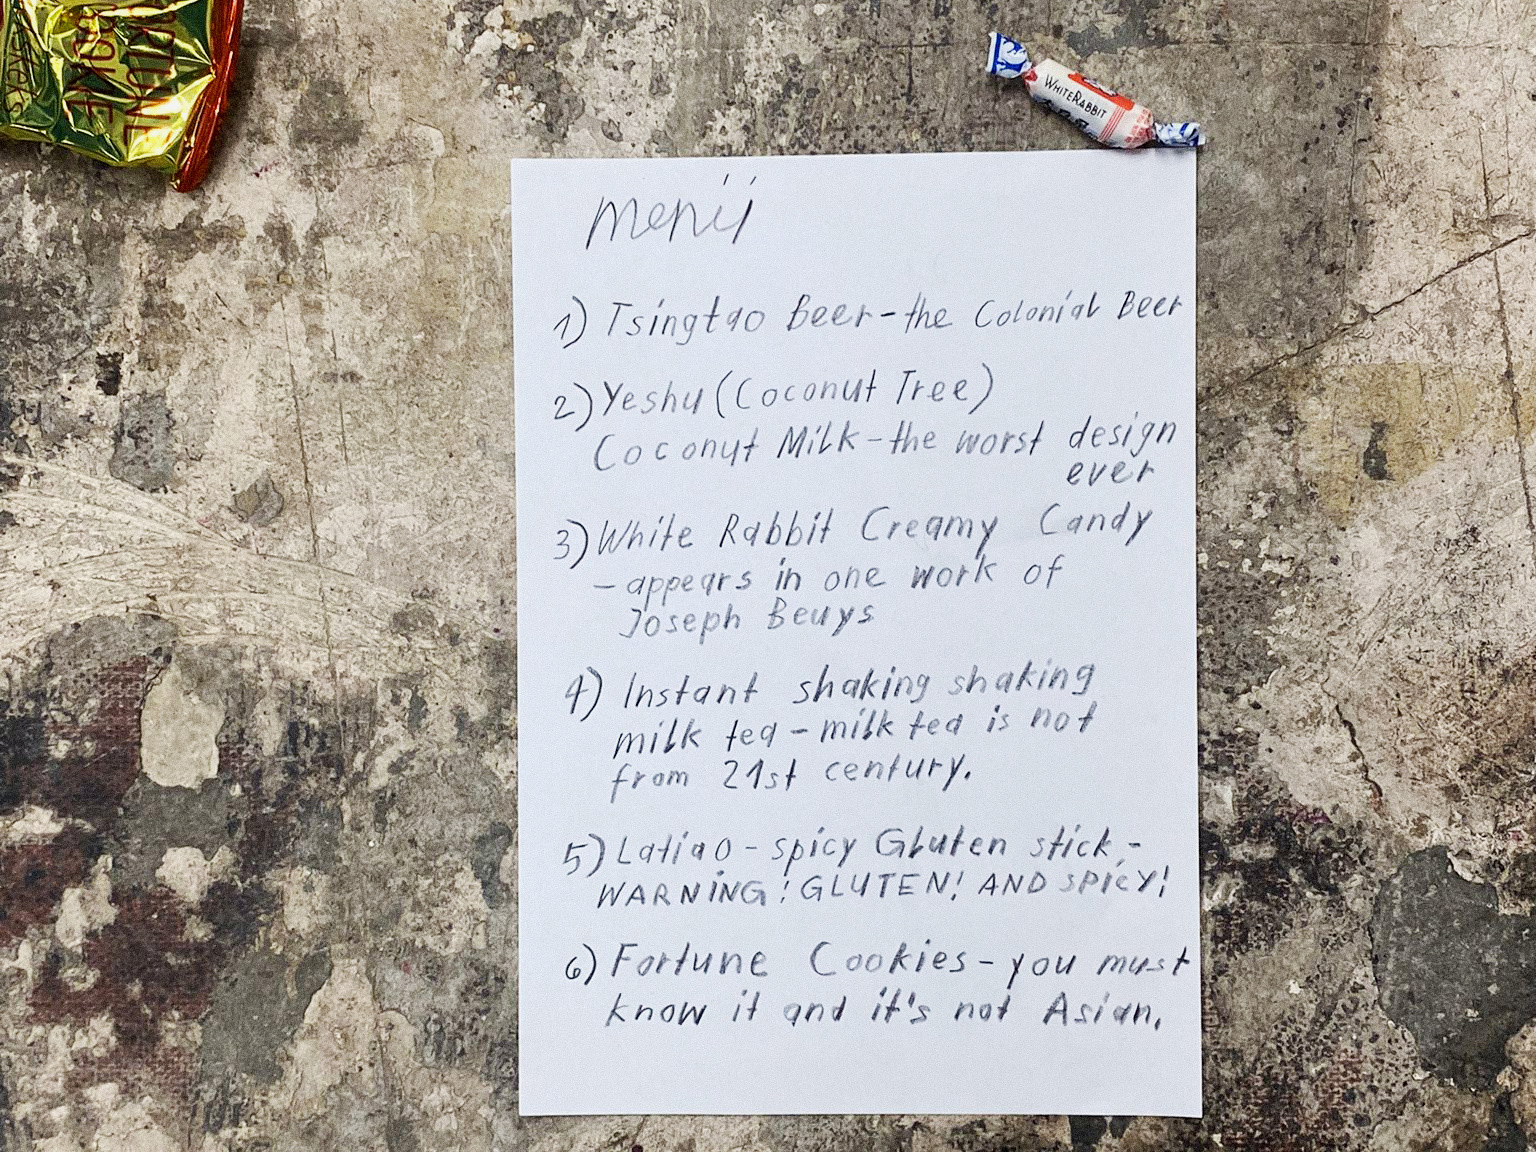 FORTUNE
COOKIE
WHITE RABBIT
Menü
1) Tsingtao Beer – the Colonial Beer
2) Yeshu (Coconut Tree)
Coconut Milk – the worst design
ever
3) White Rabbit Creamy Candy
– appears in one work of
Joseph Beuys
4) Instant shaking shaking
milk tea – milk tea is not
from 21st century.
5) Latiao – spicy Gluten stick, –
WARNING! GLUTEN! AND SPICY!
6) Fortune Cookies – you must
know it and it's not Asian.